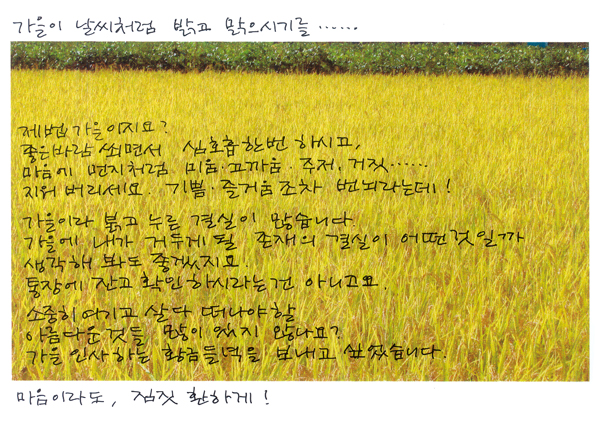 가을이 날씨처럼 밝고 맑으시기를 ······
제법 가을이지요?
좋은바람 쐬면서 심호흡 한번 하시고,
마음에 먼지처럼 미움·고까움·주저, 거짓······
지워 버리세요. 기쁨·즐거움조차 번뇌라는데!
가을이라 붉고 누른 결실이 많습니다
가을에 내가 거두게 될 존재의 결실이 어떤것일까
생각해 봐도 좋겠지요.
통장에 잔고 확인하시라는건 아니고요.
소중히 여기고 살다 떠나야할
아름다운것들 많이 있지 않나요?
가을 인사하는 황금들녘을 보내고 싶었습니다.
마음이라도, 짐짓 환하게!